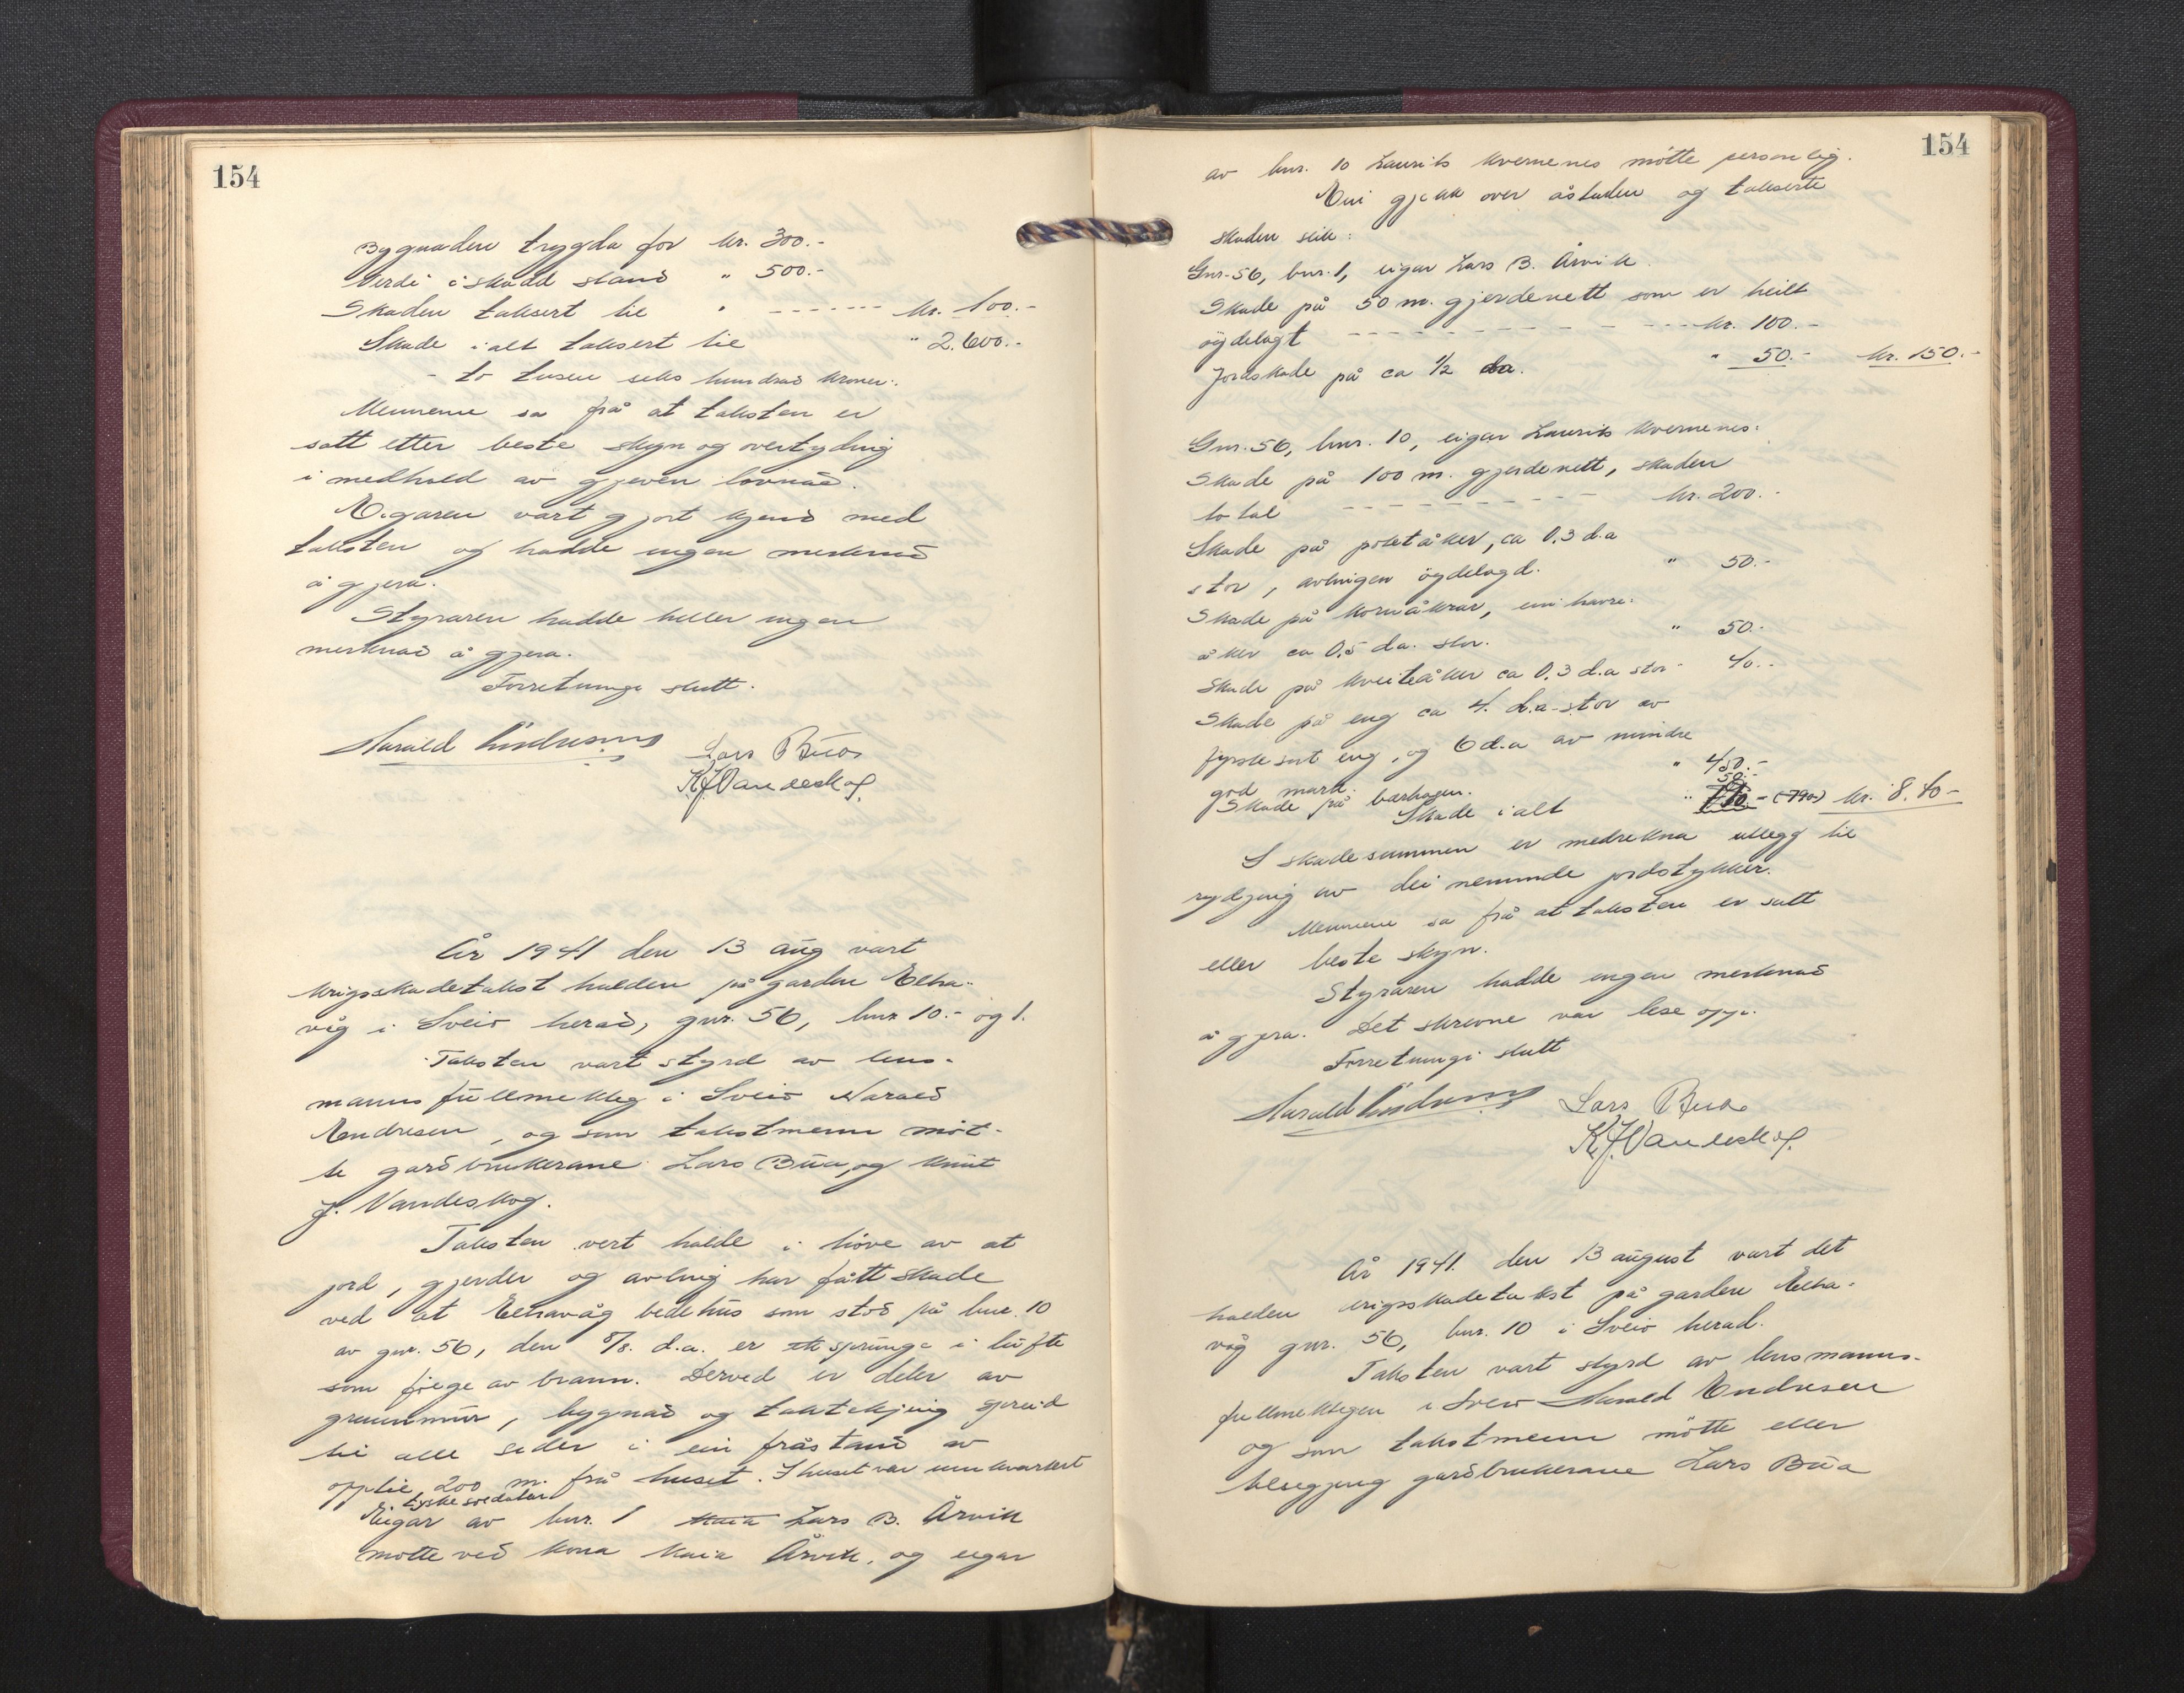 154
Bygnaden trygda for kr. 300.-
Verdi i skadd stand " 500.-
Skaden taksert til " ------ kr. 100.-
Skade i alt taksert til " 2.600.-
- to tusen seks hundrad kroner.-
Mennene sa frå at taksten er
satt etter beste skyn og overtyding
i medhald av gjeven lovnad.
Eigaren vart gjort kjend med
taksten og hadde ingen merknad
å gjera.
Styraren hadde heller ingen
merknad å gjera.
Forretninga slutt.
Harald Endresen Lars Bua
K J Vandeskog.
År 1941 den 13 aug vart
krigsskadetakst halden på garden Elka-
våg i Sveio herad, gnr. 56, bnr 10.- og 1.
Taksten vart styrd av lens-
mannsfullmektig i Sveio Harald
Endresen, og som takstmenn møt-
te gardbrukerane Lars Bua, og Knut
J. Vandeskog.
Taksten vert halde i høve av at
jord, gjerder og avling har fått skade
ved at Elkavåg bedehus som stod på bnr. 10
av gnr. 56, den 8/8. d.a. er sprunge i lufta
som følge av brann. Derved er deler av
grunnmur, bygnad og taktekjing spreid
til alle sider i ein fråstand av
opptil 200 m. frå huset. I huset var innkvartert
tyske soldatar
Eigar av bnr. 1 Kaia Lars B. Årvik
møtte ved kona Kaia Årvik, og eigar
154
av bnr. 10 Laurits Kvernenes møtte personlig.
Ein gjekk over åstaden og takserte
skaden slik:
Gnr. 56, bnr. 1, eigar Lars B. Årvik.
Skade på 50 m. gjerdenett som er heilt
øydelagt ------ kr. 100.-
Jordskade på ca 1/2 da. " 50.- kr. 150.-
Gnr. 56, bnr. 10, eigar Laurits Kvernenes:
Skade på 100 m. gjerdenett, skaden
total ------ kr. 200.-
Skade på potetåker, ca 0.3 d.a
stor, avlingen øydelagd. " 50.-
Skade på kornåkrar, ein havre-
åker ca 0.5 da. stor. " 50.-
Skade på kveiteåker ca 0.3 d.a stor - 40.-
Skade på eng ca 4. d.a - stor av
fyrste sort eng, og 6 d.a av mindre
god mark. " 450.-
Skade på bærhagen. 50.-
Skade i alt " - (790) kr. 8.40-
I skadesummen er medrekna utlegg til
rydjing av dei nemnde jordstykker.
Mennene sa frå at taksten er satt
etter beste skyn.
Styraren hadde ingen merknad
å gjera. Det skrevne var lese opp.
Forretningi slutt
Harald Endresen Lars Bua
K J Vandeskog.
År 1941. den 13 august vart det
halden krigsskadetakst på garden Elka-
våg gnr. 56, bnr. 10 i Sveio herad.
Taksten vart styrd av lensmanns-
fullmektigen i Sveio Harald Endresen
og som takstmenn møtte etter
tilsegjing gardbrukerane Lars Bua